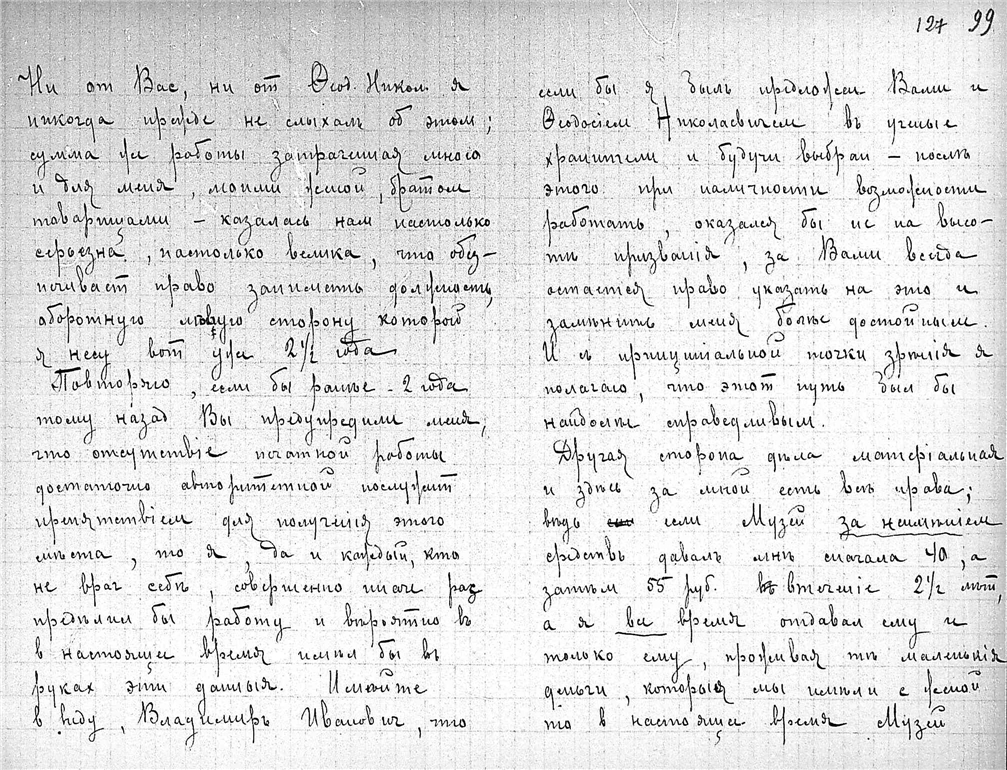 127 99
Ни от Вас, ни от Ѳеод. Никол. я
никогда прежде не слыхалъ об этом;
сумма же работы затраченная много
и для меня, моими женой, братом
товарищами – казалась нам настолько
серьезна, настолько велика, что обез-
печивает право занимать должность,
оборотную сторону которой
я несу вот уже 2 1/2 года.
Повторяю, если бы ранѣе – 2 года
тому назад Вы предупредили меня,
что отсутствіе печатной работы
достаточно авторитетной послужит
препятствіем для полученія этого
мѣста, то я, да и каждый, кто
не враг себѣ, совершенно иначе рас
предѣлил бы работу и вѣроятно въ
в настоящее время имѣл бы въ
руках эти данныя. Имѣйте
в виду, Владимиръ Иванович, что
если бы я былъ предложен Вами и
Ѳеодосіем Николаевичем въ ученые
хранители и будучи выбран – послѣ
этого при наличности возможности
работать, оказался бы не на высо-
тѣ призванія, за Вами всегда
остается право указать на это и
замѣнить меня болѣе достойным.
И с принципіальной точки зрѣнія я
полагаю, что этот путь был бы
наиболѣе справедливым.
Другая сторона дѣла матеріальная
и здѣсь за мной есть всѣ права;
вѣдь если Музей за неимѣніем
средствъ давалъ мнѣ сначала 40, а
затѣм 55 руб. втеченіе 2 1/2 лѣт,
а я все время отдавал ему и
только ему, проживая тѣ маленькія
деньги, которыя мы имѣли с женой
то в настоящее время Музей